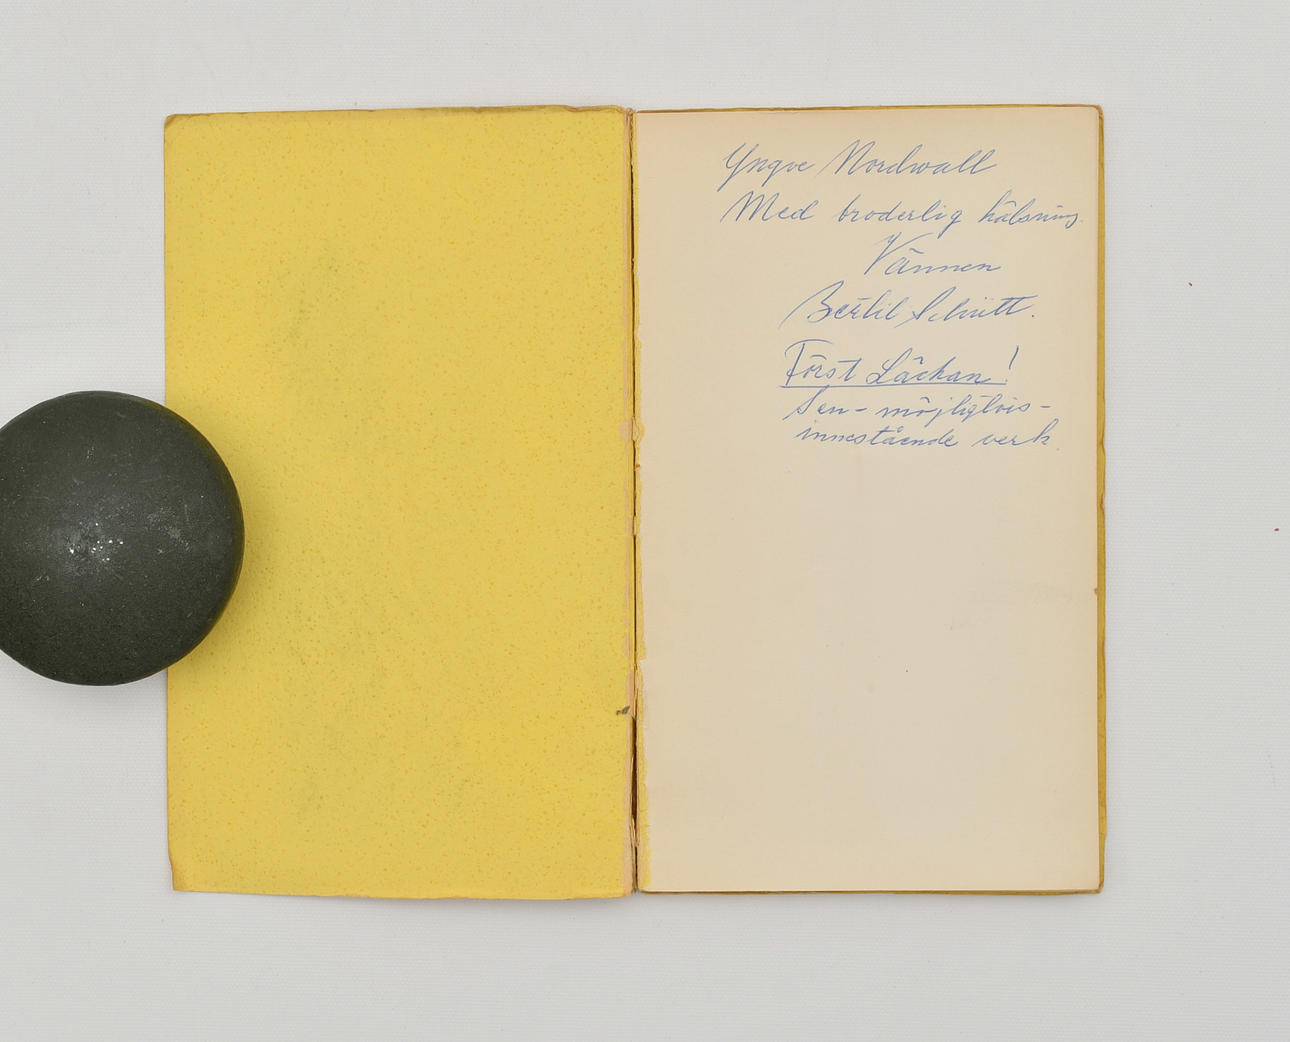 Yngve Nordwall
Med broderlig hälsning.
Vännen
Bertil Schütt.
Först Läckan!
Sen – möjligtvis –
innestående verk.